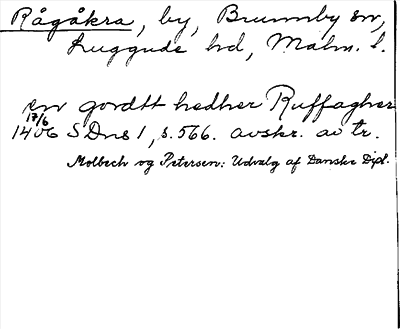 Rågåkra, by, Brunnby sn,
Luggude hd, Malm. l.
en gordtt hedher Ruffagher
17/6
1406 SDns 1, s. 566. avskr. av tr.
Molbech og Petersen: Udvalg af Danske Dipl.